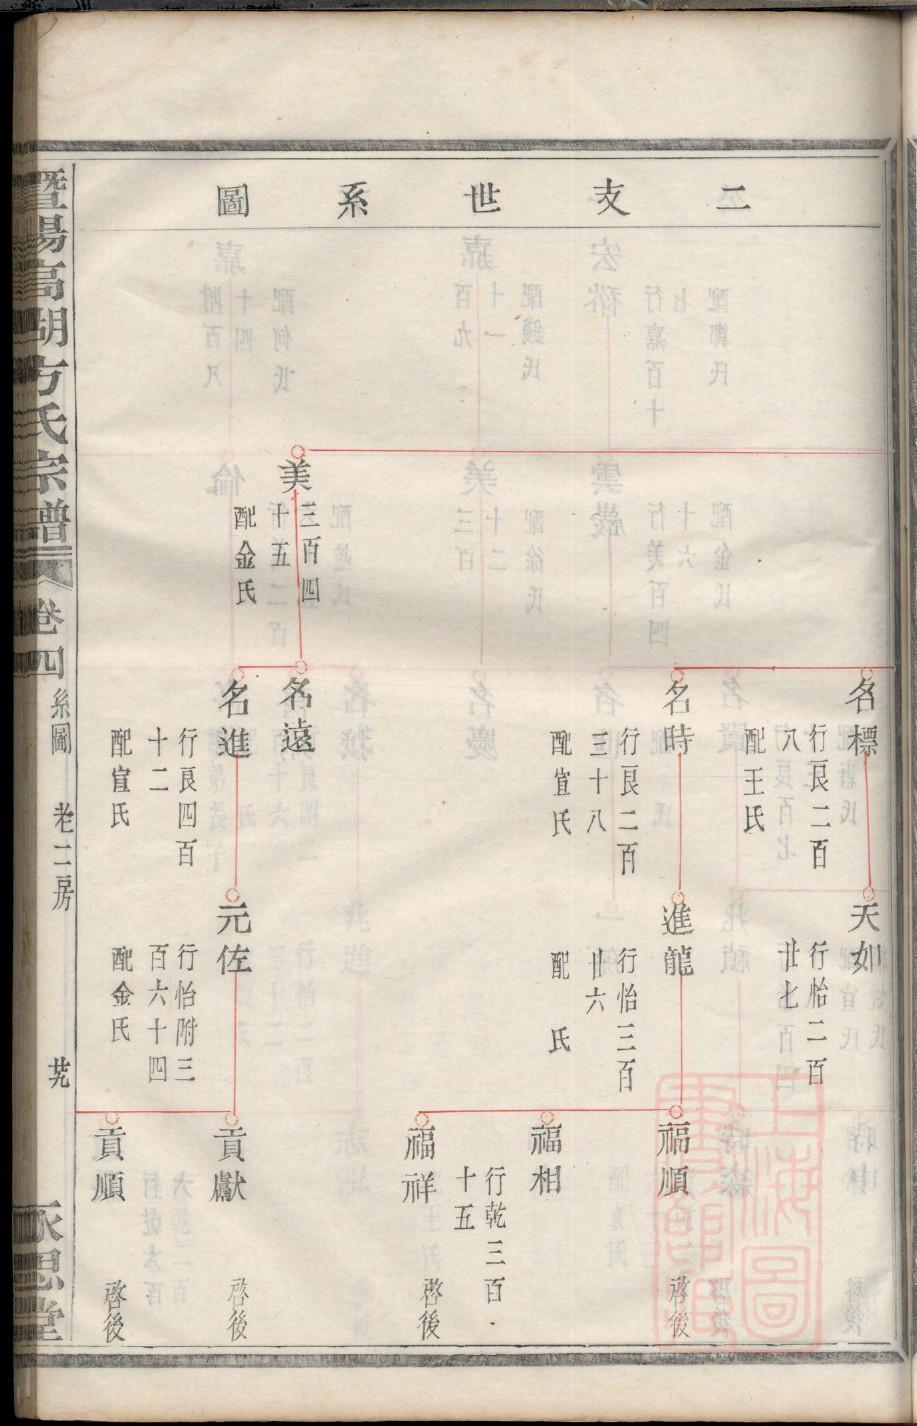 二支世系圖
美
三百四
十五
配金氏
名標
行艮二百
八
配王氏
名時
行艮二百
三十八
配宣氏
名遠
名進
行艮四百
十二
配宣氏
天如
行怡二百
廿七
進龍
行怡三百
廿六
配 氏
元佐
行怡附三
百六十四
配金氏
福順
啓後
福相
行乾三百
十五
福祥
啓後
貢獻
啓後
貢順
啓後
暨陽高湖方氏宗譜
卷四
系圖
老二房
芫
永思堂
上海圖
書館藏